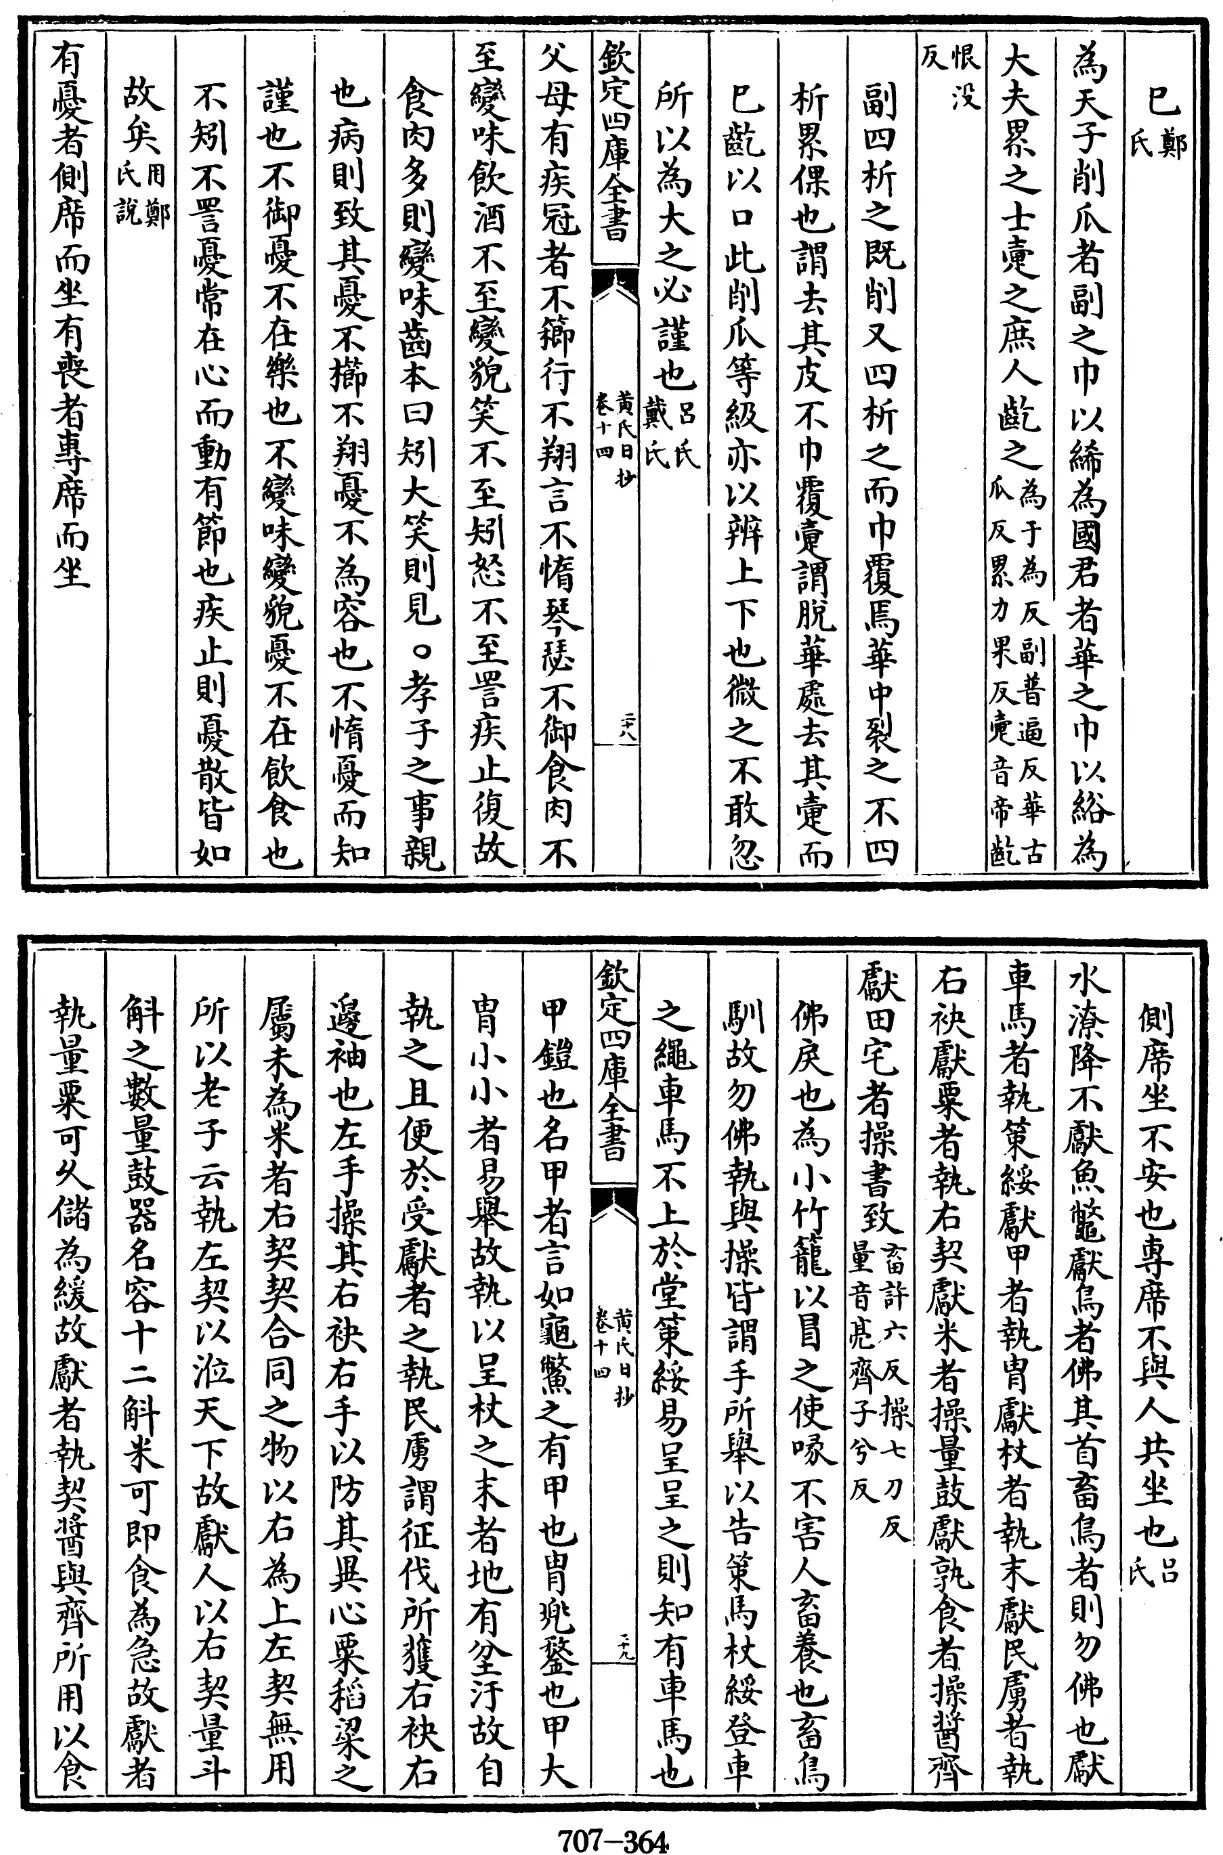 已鄭氏
為天子削瓜者副之巾以絺為國君者華之巾以綌為
大夫累之士疐之庶人齕之為于為反副普遍反華古瓜反累力果反疐音帝齕
恨没反
副四析之既削又四析之而巾覆焉華中裂之不四
析累倮也謂去其皮不巾覆疐謂脫華處去其疐而
已齕以口此削瓜等級亦以辨上下也微之不敢忽
所以為大之必謹也吕氏戴氏
欽定四庫全書
黄氏日抄卷十四
二十八
父母有疾冠者不櫛行不翔言不惰琴瑟不御食肉不
至變味飲酒不至變貌笑不至矧怒不至詈疾止復故
食肉多則變味齒本曰矧大笑則見。孝子之事親
也病則致其憂不櫛不翔憂不為容也不惰憂而知
謹也不御憂不在樂也不變味變貌憂不在飲食也
不矧不詈憂常在心而動有節也疾止則憂散皆如
故矣用鄭氏說
有憂者側席而坐有喪者專席而坐
側席坐不安也專席不與人共坐也吕氏
水潦降不獻魚鼈獻鳥者佛其首畜鳥者則勿佛也獻
車馬者執策綏獻甲者執胄獻杖者執末獻民虜者執
右袂獻粟者執右契獻米者操量鼓獻孰食者操醬齊
獻田宅者操書致畜許六反操七刀反量音亮齊子兮反
佛戾也為小竹籠以冒之使喙不害人畜養也畜鳥
馴故勿佛執與操皆謂手所舉以告策馬杖綏登車
之繩車馬不上於堂策綏易呈呈之則知有車馬也
欽定四庫全書
黄氏日抄卷十四
二十九
甲鎧也名甲者言如龜鱉之有甲也胄兜鍪也甲大
胄小小者易舉故執以呈杖之末者地有坌汙故自
執之且便於受獻者之執民虜謂征伐所獲右袂右
邊袖也左手操其右袂右手以防其異心粟稻粱之
屬未為米者右契契合同之物以右為上左契無用
所以老子云執左契以涖天下故獻人以右契量斗
斛之數量鼓器名容十二斛米可即食為急故獻者
執量粟可久儲為緩故獻者執契醬與齊所用以食
707-364